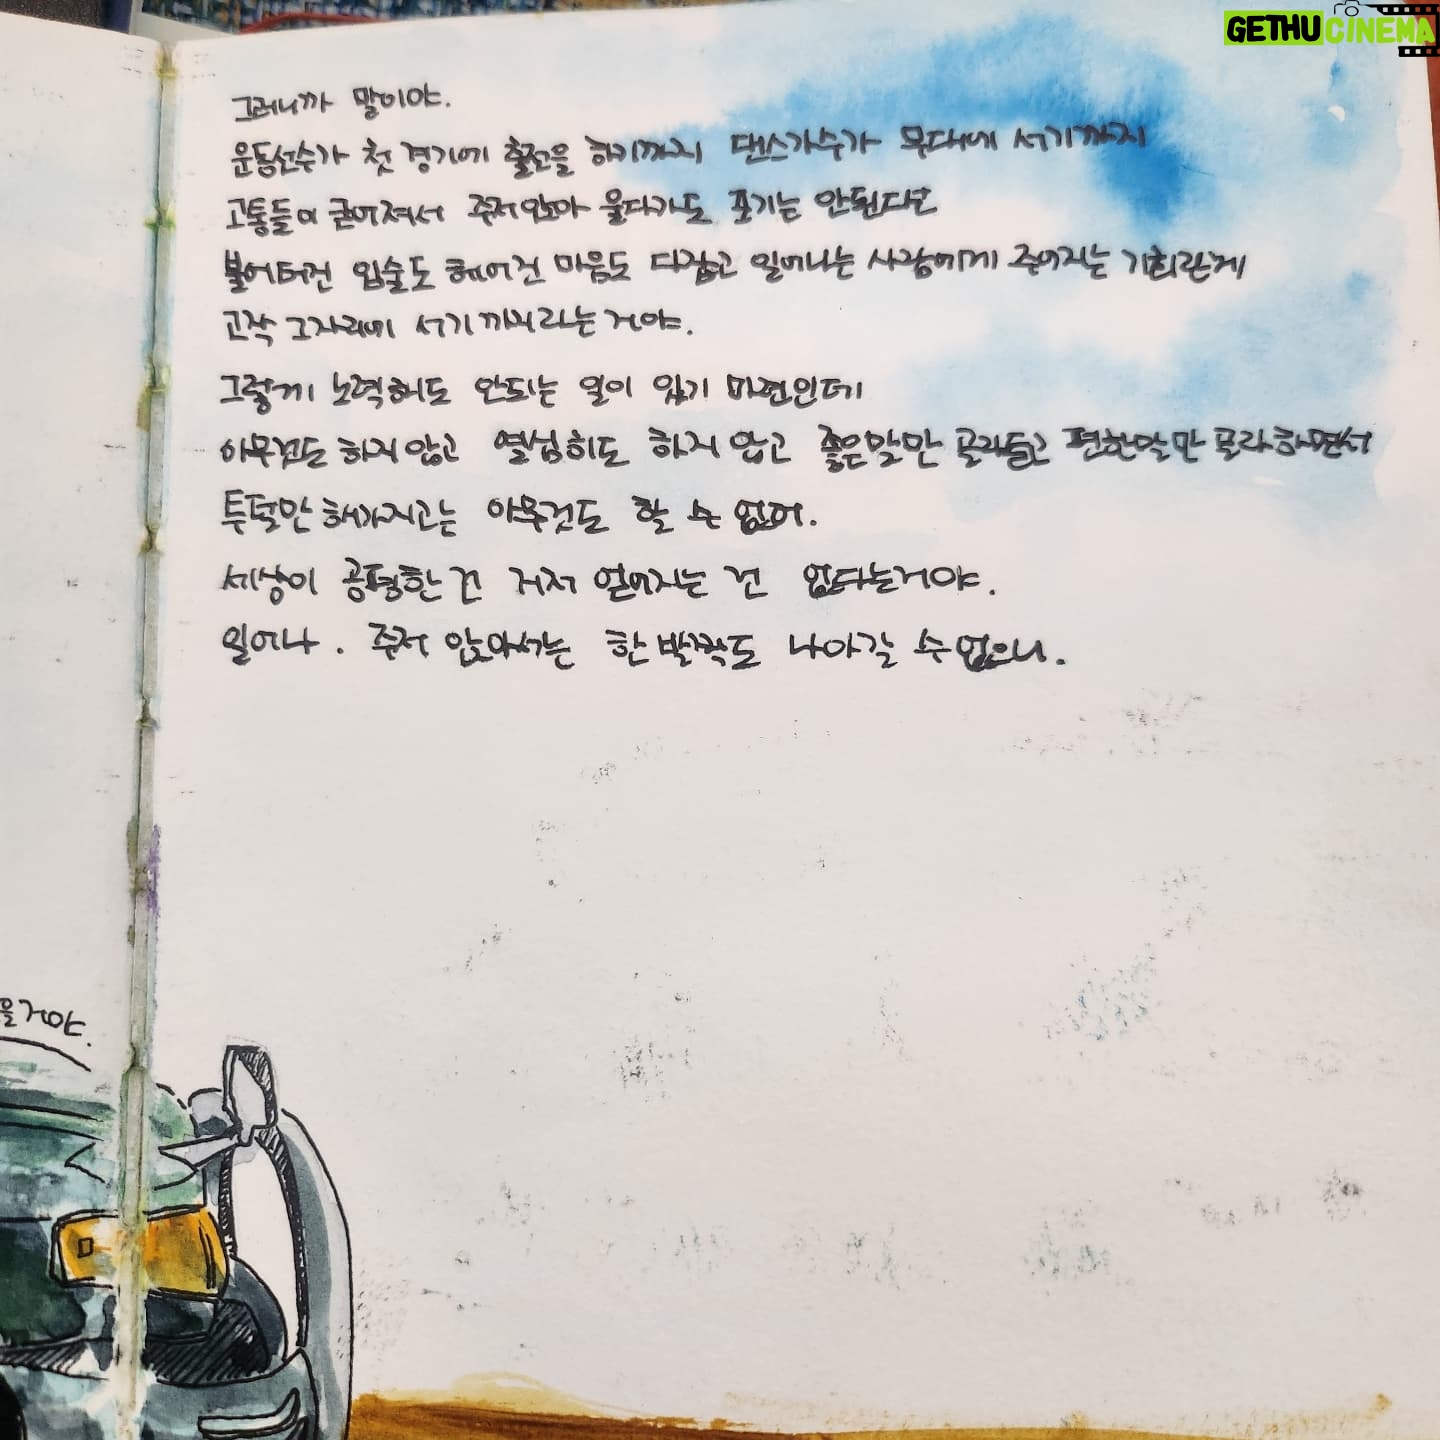 GETHU CINEMA
그러니까 말이야.
운동선수가 첫 경기에 출전을 하기까지 댄스가수가 무대에 서기까지
고통들이 굳어져서 주저앉아 울다가도 포기는 안된다고
불어터진 입술도 헤어진 마음도 다잡고 일어나는 사람에게 주어지는 기회란게
고작 그자리에 서기까지라는거야.
그렇게 노력해도 안되는 일이 있기 마련인데
아무것도 하지 않고 열심히도 하지 않고 좋은말만 골라듣고 편한말만 골라하면서
투덜만 해가지고는 아무것도 할 수 없어.
세상이 공평한 건 거저 얻어지는 건 없다는거야.
일어나. 주저 앉아서는 한 발짝도 나아갈 수 없으니.
을거야.